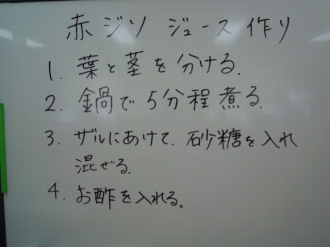 赤ジソ ジュース 作り
1. 葉と茎を分ける.
2. 鍋で5分程煮る.
3. ザルにあけて. 砂糖を入れ
混ぜる.
4. お酢を入れる。